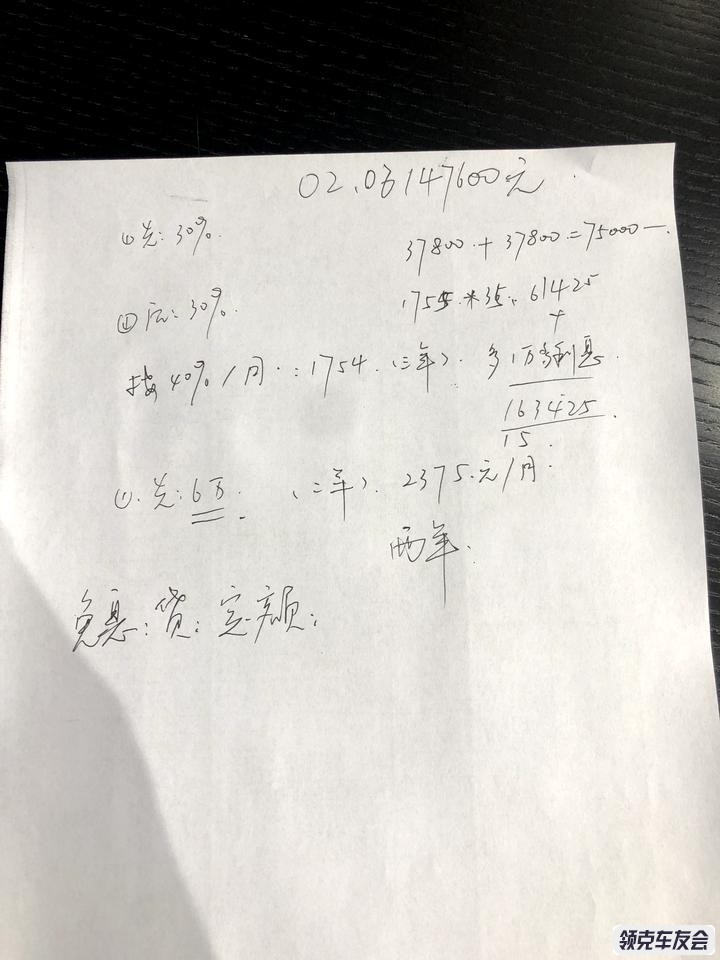 02.03147600元
①先:30%.
37800+37800=75000一.
②后:30%.
175*35=61425
+
按40%/月:1754.(三年).
多1万多利息.
163425.
15.
①.先:6万.(三年).2375.元/月.
两年.
免息:贷:定额:
领克车友会